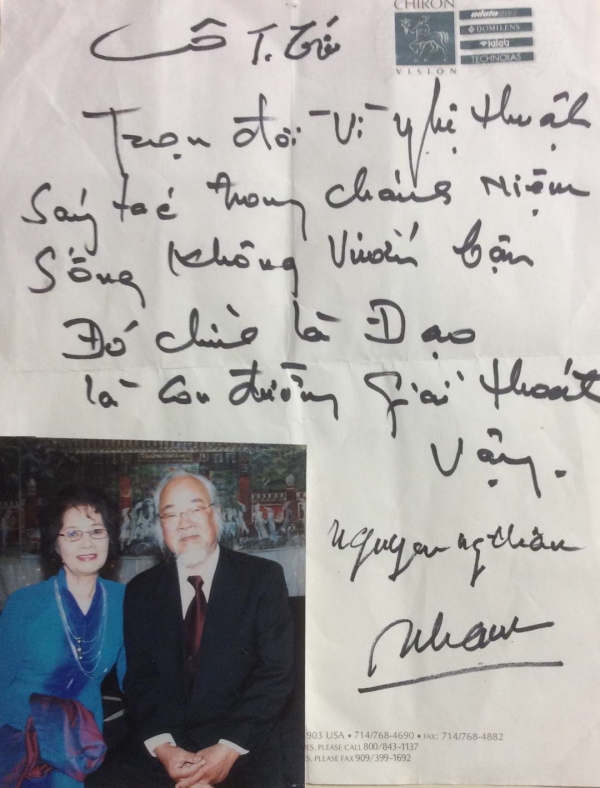 Cô T. Trí
CHIRON
VISION
adatomed
DOMILENS
iolab
TECHNOLAS
Trọn đời vì nghệ thuật
Sáng tác trong chánh niệm
Sống không vướng bận
Đó chính là Đạo
là con đường giải thoát
vậy.
903 USA • 714/768-4690 • FAX: 714/768-4882
ES, PLEASE CALL 800/843-1137
S, PLEASE FAX 909/399-1692